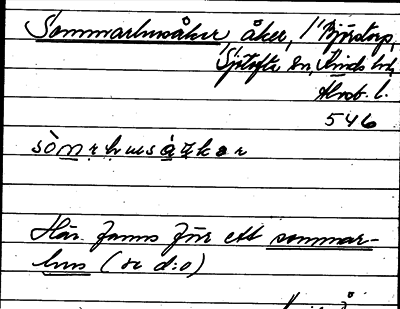 Sommarhusåker åker, i Björstorp,
Sjötofta sn, Kinds hd,
Älvsb. l.
546
Här fanns förr ett sommar-
hus (se d:o)